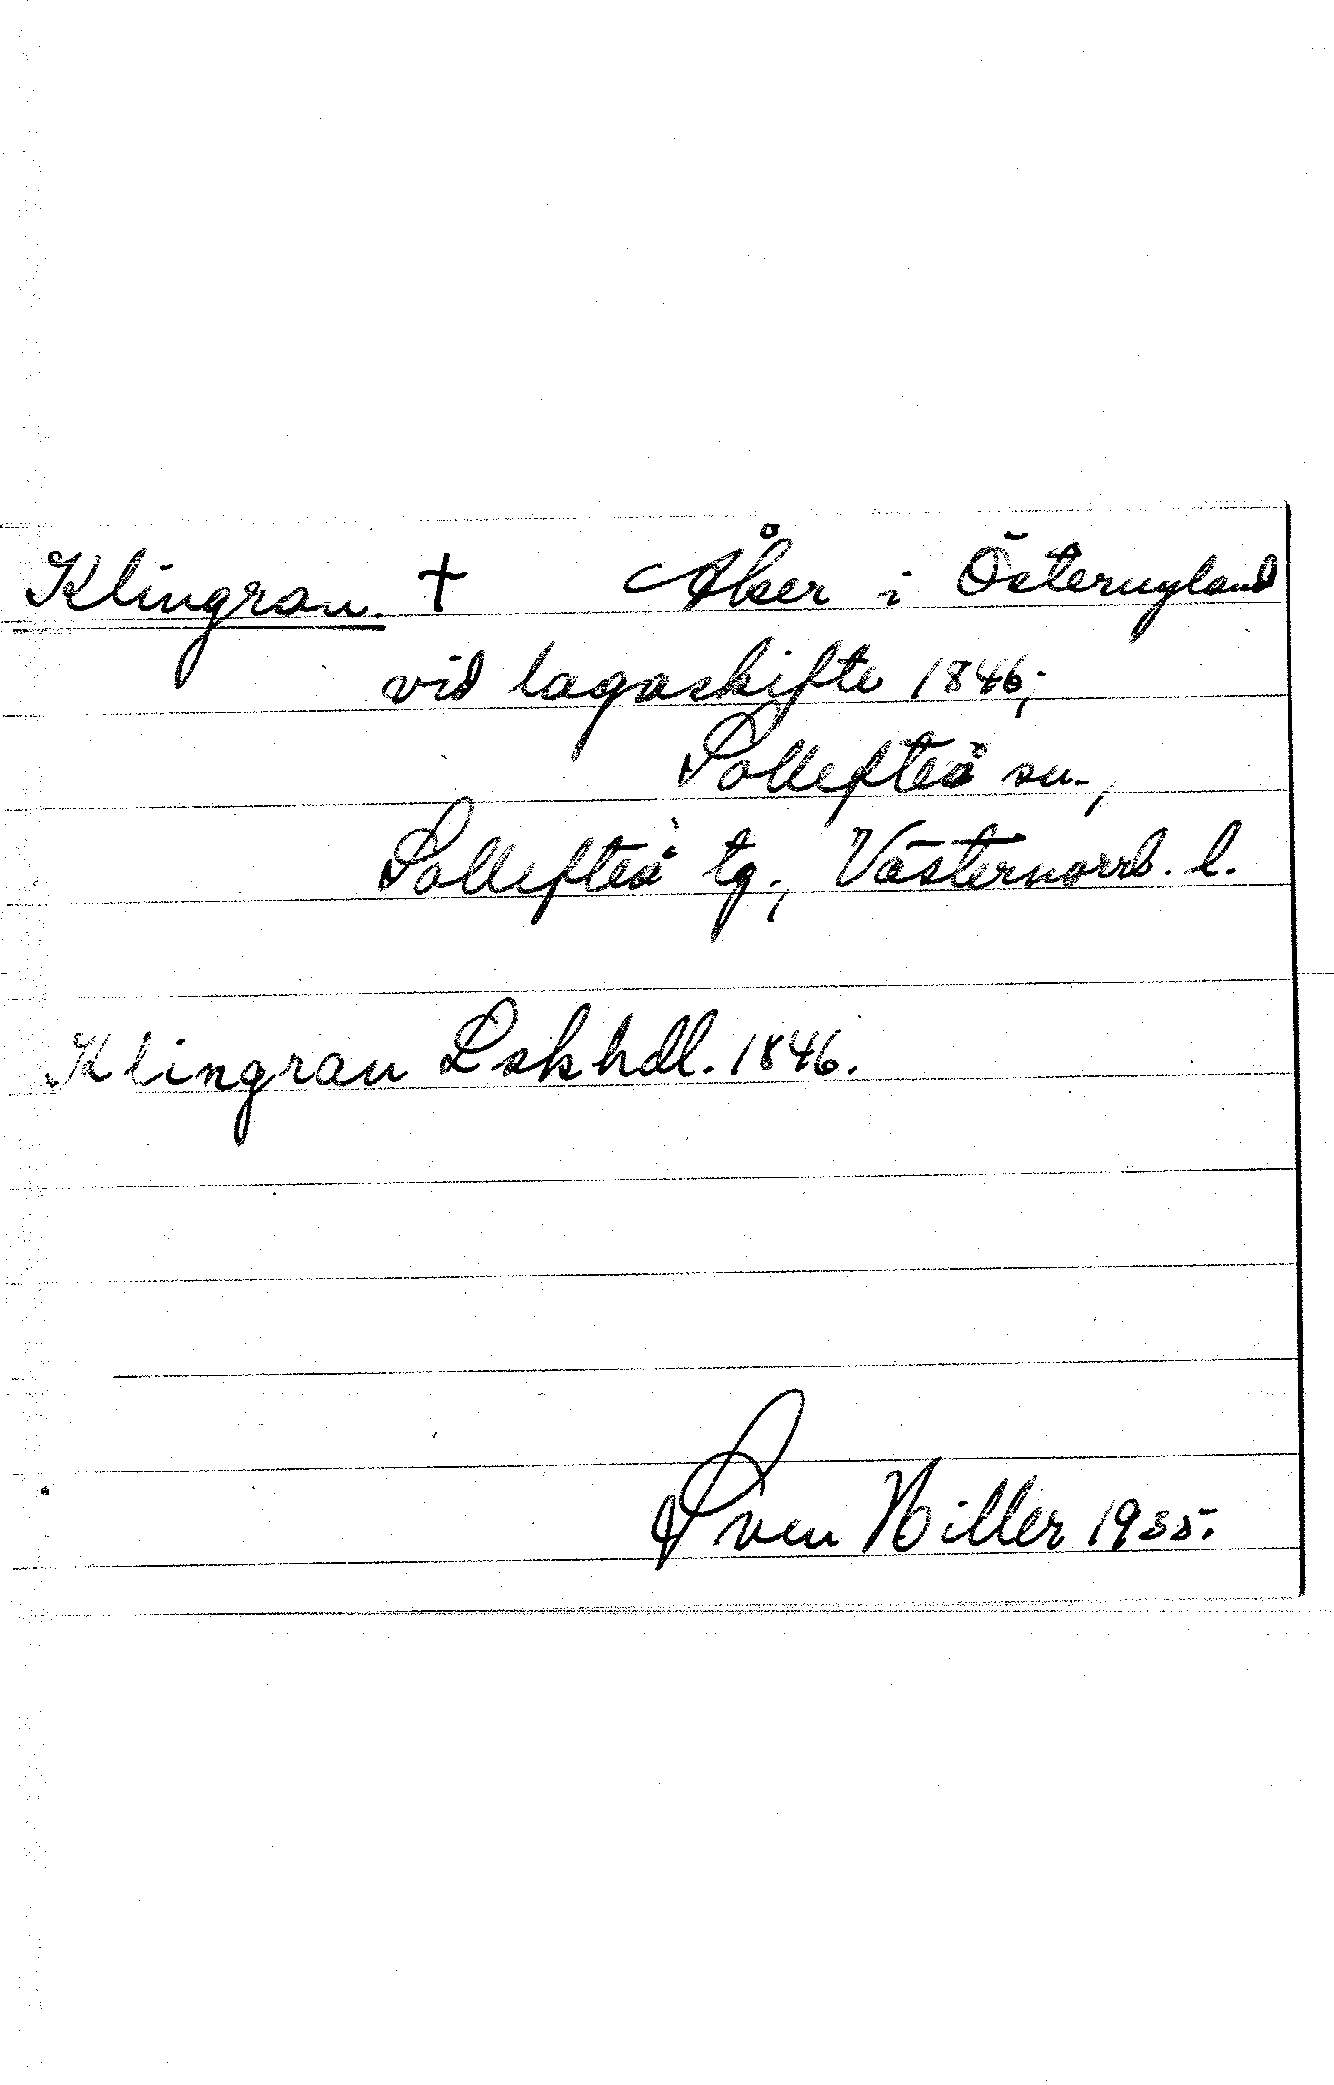 Klingran. + Åker i Östernyland
vid lagaskifte 1846;
Sollefteå sn.,
Sollefteå tg., Västernorrl. l.
Klingran Lskhdl. 1846.
Sven Hiller 1935.